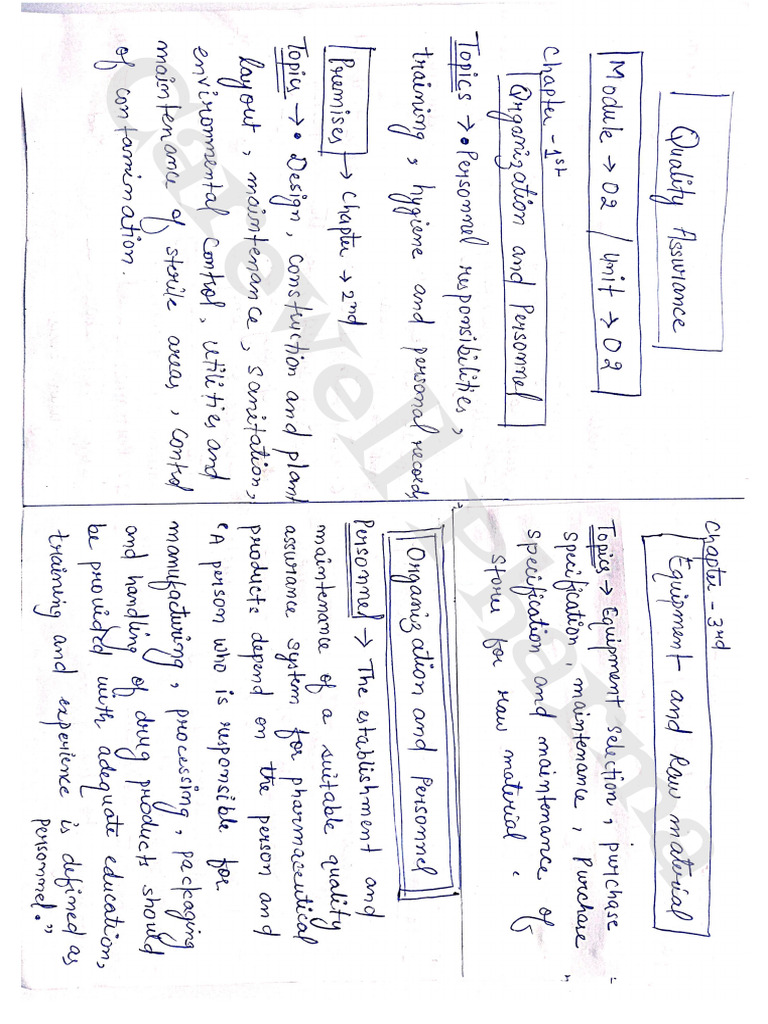 Quality Assurance
Module → 02 / Unit → 02
Chapter - 1st
Organization and Personnel
Topics → • Personnel responsibilities,
training, hygiene and personal records
Premises → Chapter → 2nd
Topics → • Design, construction and plant
layout, maintenance, sanitation,
environmental control, utilities and
maintenance of sterile areas, control
of contamination.
Chapter - 3rd
Equipment and Raw material
Topics → Equipment selection, purchase
specification, maintenance, Purchase
specification and maintenance of
store for raw material.
Organization and Personnel
Personnel → The establishment and
maintenance of a suitable quality
assurance system for pharmaceutical
products depend on the person and
"A person who is responsible for
manufacturing, processing, packaging
and handling of drug products should
be provided with adequate education,
training and experience is defined as
personnel."
Carewell Pharma